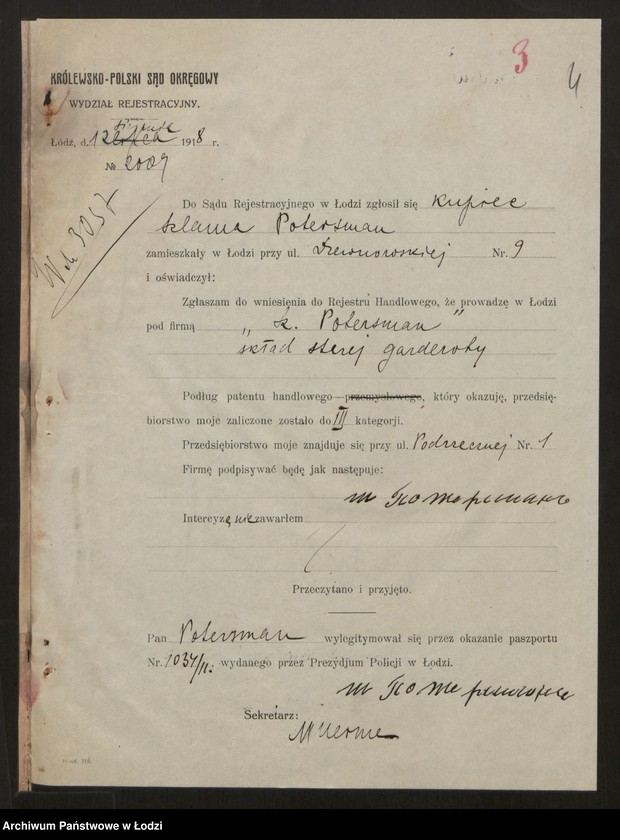 3
4
KRÓLEWSKO-POLSKI SĄD OKRĘGOWY
WYDZIAŁ REJESTRACYJNY.
Łódź, d. 12 1918 r.
№ 2009
3037
Do Sądu Rejestracyjnego w Łodzi zgłosił się kupiec
Szlama Potersman
zamieszkały w Łodzi przy ul. Drewnowskiej Nr. 9
i oświadczył:
Zgłaszam do wniesienia do Rejestru Handlowego, że prowadzę w Łodzi
pod firmą „Sz. Potersman"
skład starej garderoby
Podług patentu handlowego-przemysłowego, który okazuję, przedsię-
biorstwo moje zaliczone zostało do III kategorji.
Przedsiębiorstwo moje znajduje się przy ul. Podrzecznej Nr. 1
Firmę podpisywać będę jak następuje:
Intercyzę nie zawarłem
Przeczytano i przyjęto.
Pan Potersman wylegitymował się przez okazanie paszportu
Nr. 1034/II. wydanego przez Prezydjum Policji w Łodzi.
Sekretarz:
Archiwum Państwowe w Łodzi